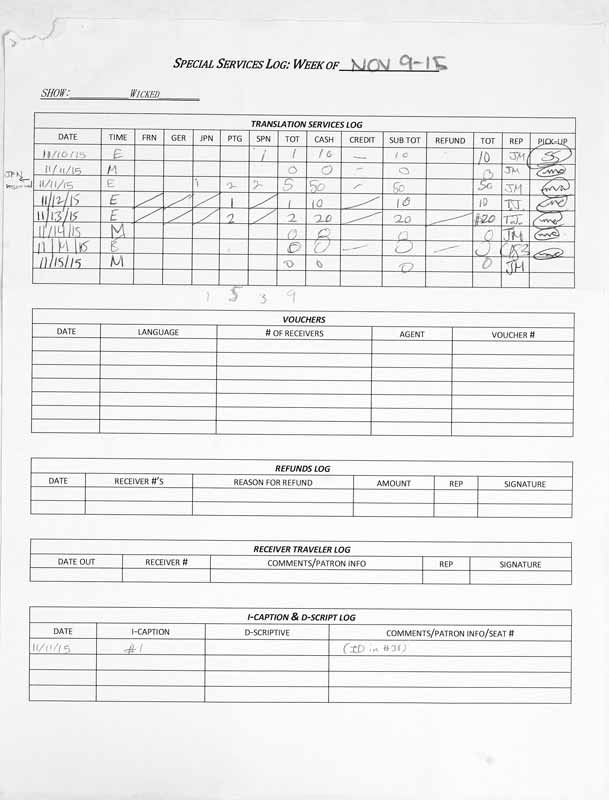 SPECIAL SERVICES LOG: WEEK OF NOV 9-15
SHOW: WICKED
TRANSLATION SERVICES LOG
DATE TIME FRN GER JPN PTG SPN TOT CASH CREDIT SUB TOT REFUND TOT REP PICK-UP
11/10/15 E 1 1 10 — 10 10 JM SS
11/11/15 M 0 0 - 0 0 JM
JPN
11/11/15 E 1 2 2 5 50 - 50 50 JM
11/12/15 E / / / 1 / 1 10 / 10 / 10 T.J.
11/13/15 E / / / 2 / 2 20 / 20 / $20 T.J.
11/14/15 M 0 0 0 0 JM
11/14/15 0 0 — 0 —
11/15/15 M 0 0 0 0 JM
1 5 3 9
VOUCHERS
DATE LANGUAGE # OF RECEIVERS AGENT VOUCHER #
REFUNDS LOG
DATE RECEIVER #'S REASON FOR REFUND AMOUNT REP SIGNATURE
RECEIVER TRAVELER LOG
DATE OUT RECEIVER # COMMENTS/PATRON INFO REP SIGNATURE
I-CAPTION & D-SCRIPT LOG
DATE I-CAPTION D-SCRIPTIVE COMMENTS/PATRON INFO/SEAT #
11/11/15 #1 (ID in #38)